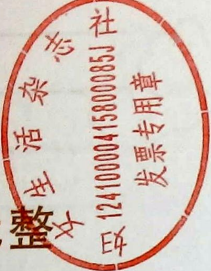 妇女生活杂志社
12410000415800085J
发票专用章
整